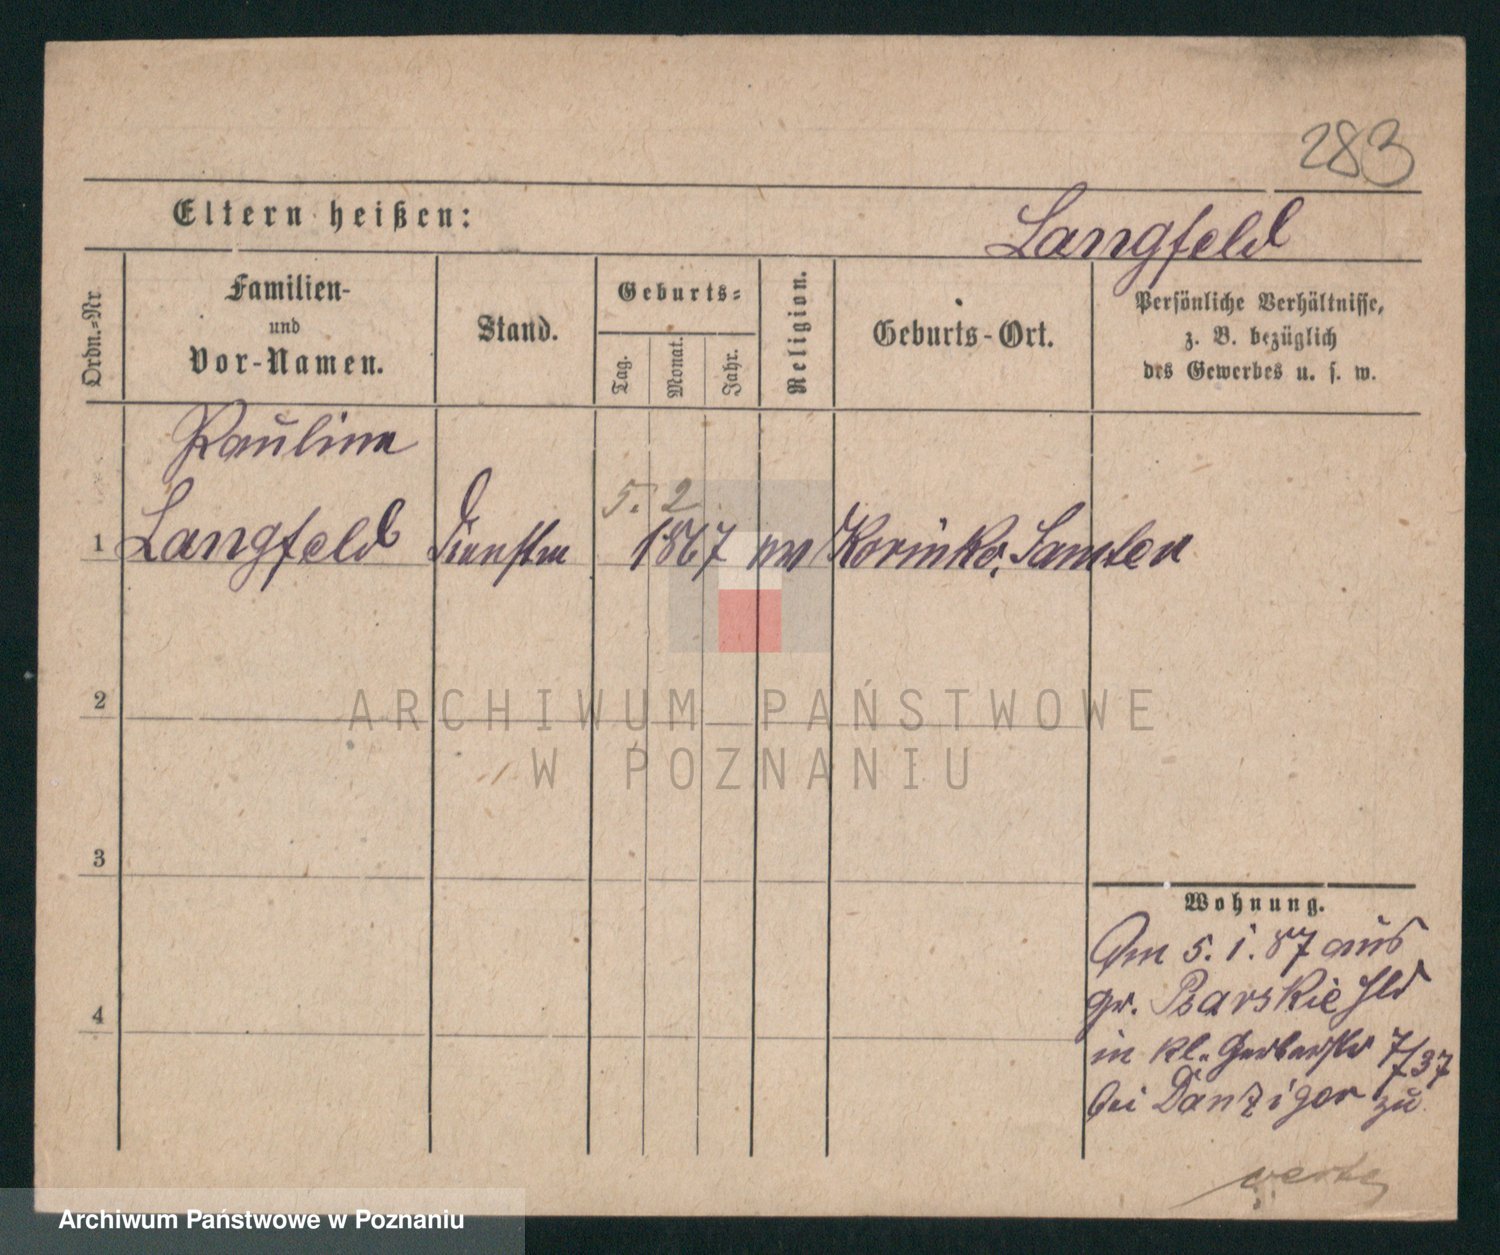 283
Eltern heißen:
Langfeld
Ordn.-Nr.
Familien-
und
Vor-Namen.
Stand.
Geburts-
Tag.
Monat.
Jahr.
Religion.
Geburts-Ort.
Persönliche Verhältnisse,
z. B. bezüglich
des Gewerbes u. s. w.
Pauline
5. 2
1 Langfeld 1867 Samter
2
ARCHIWUM PAŃSTWOWE
W POZNANIU
3
Wohnung.
Am 5. 1. 87 aus
gr. Psarskie
in kl. Gerberstr 7/37
bei Danziger zu
4
Archiwum Państwowe w Poznaniu